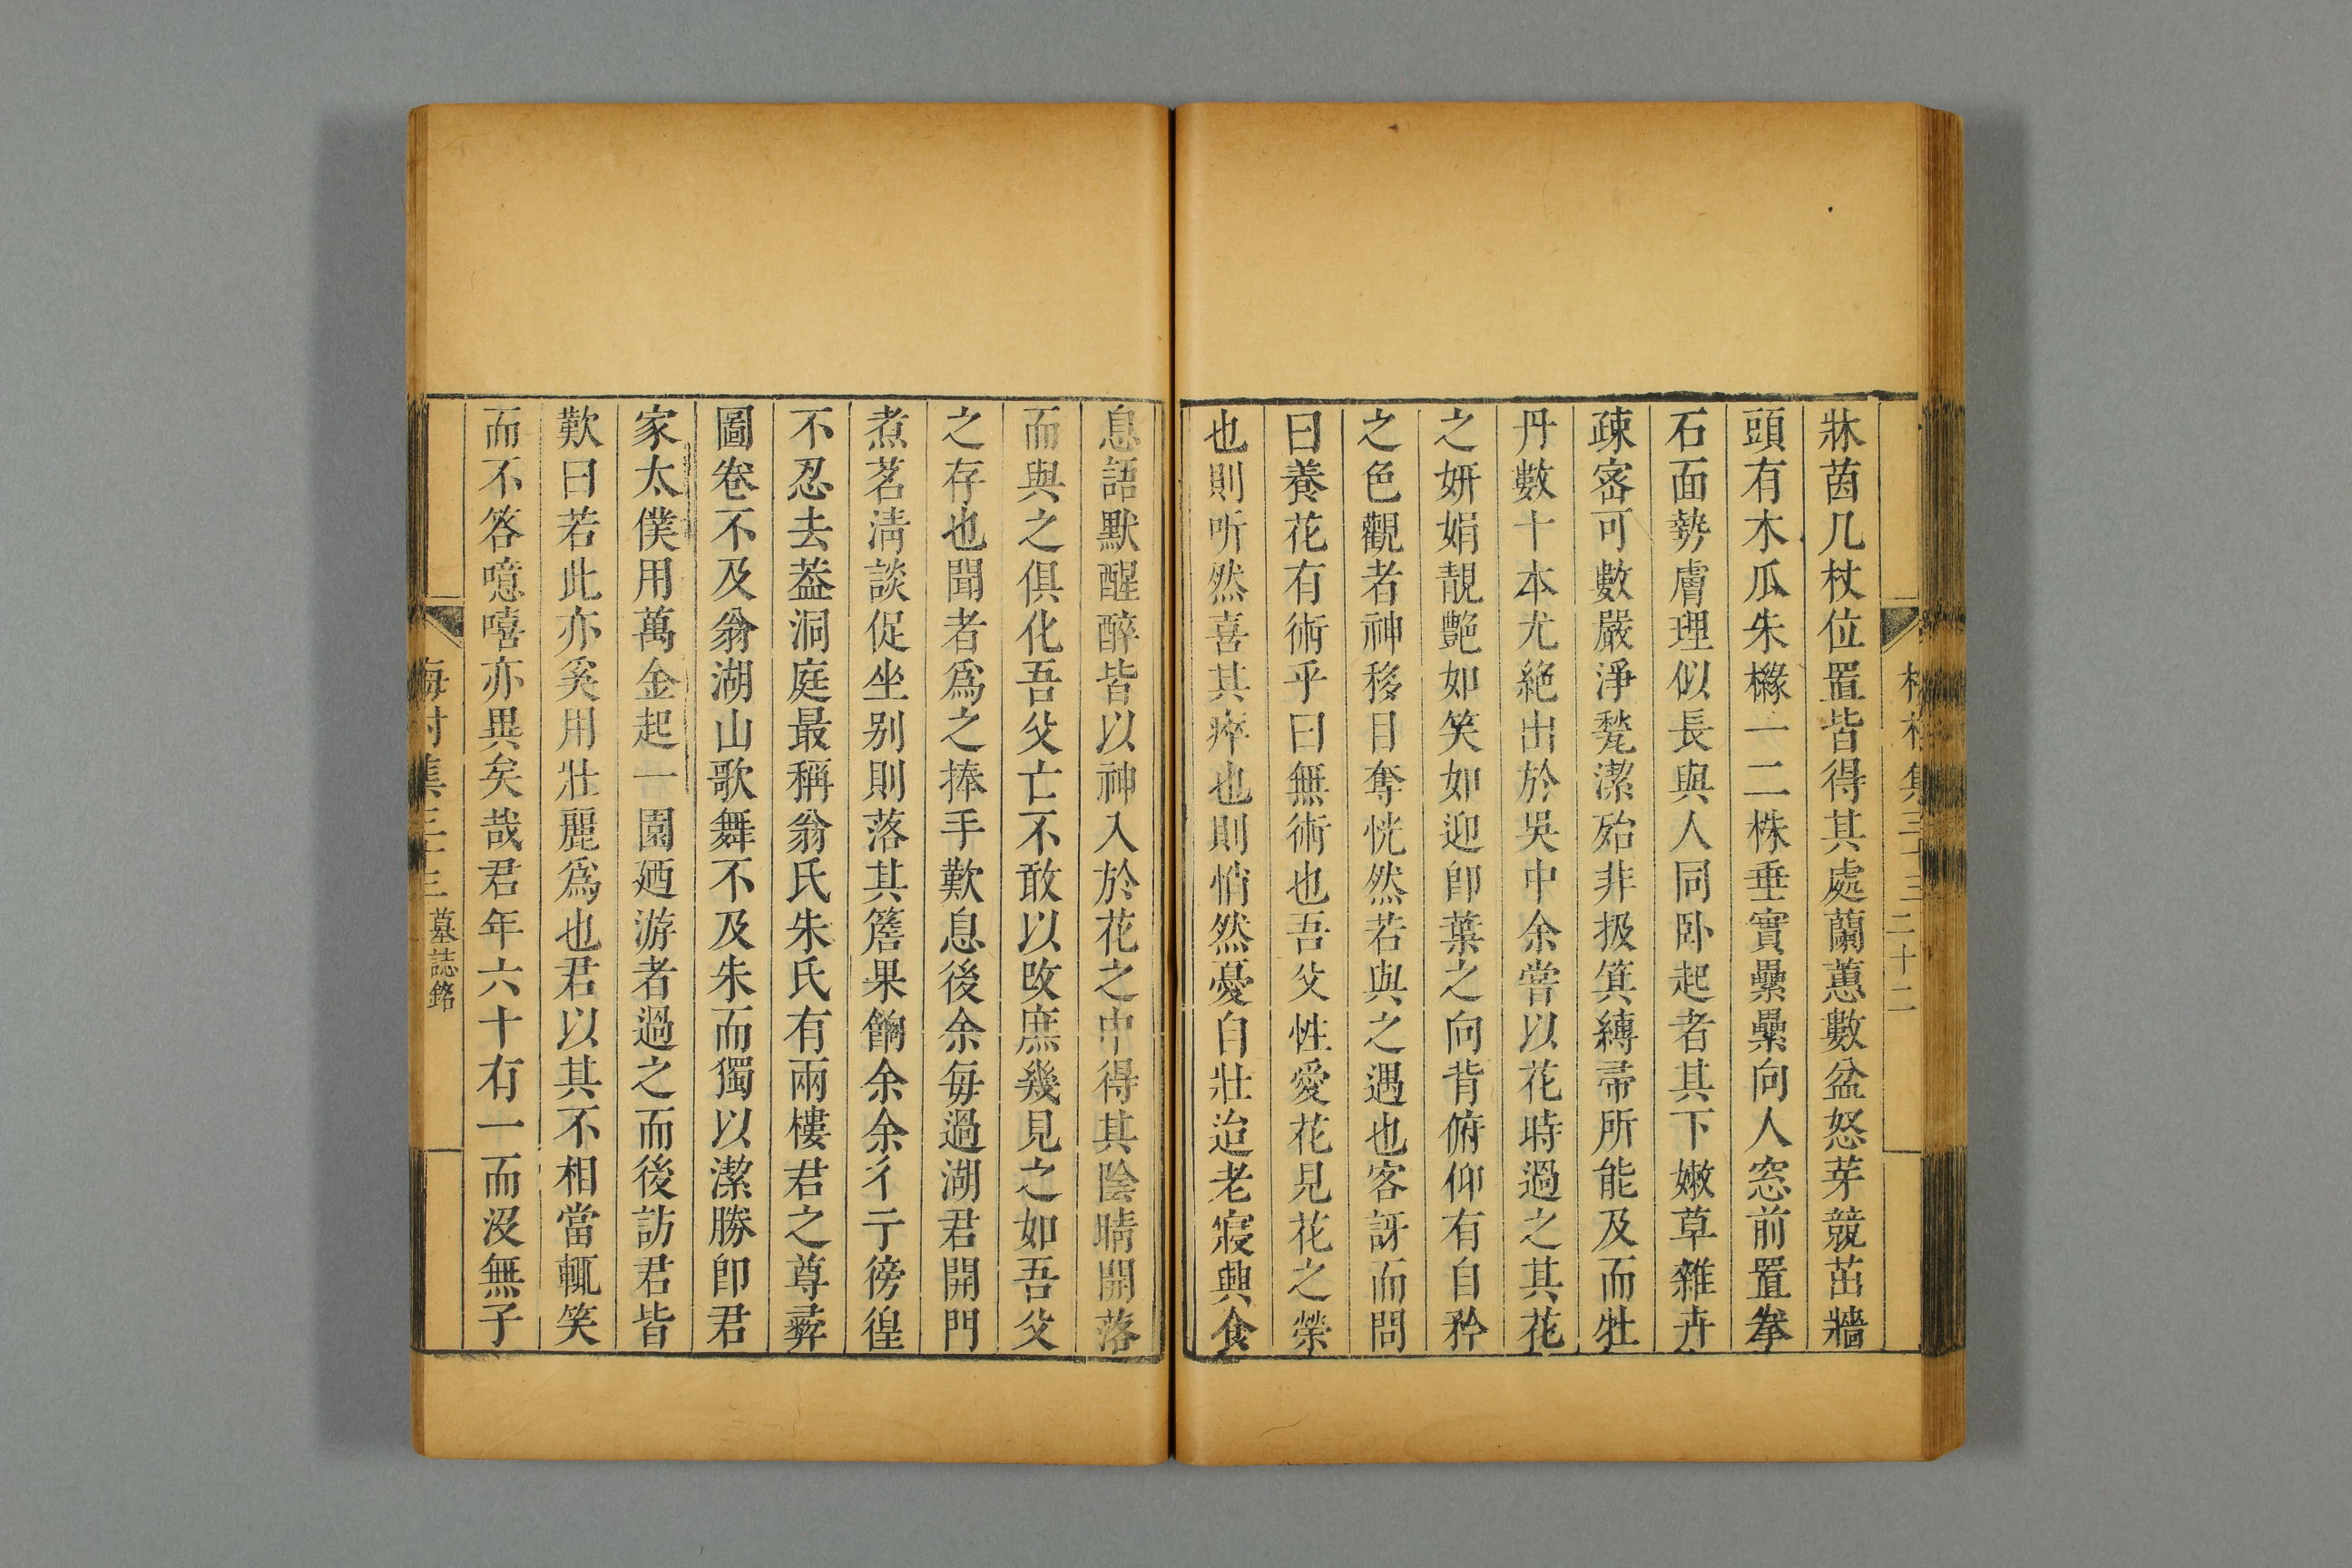 牀茵几杖位置皆得其處蘭蕙數盆怒芽競茁牆
頭有木瓜朱櫞一二株垂實纍纍向人窓前置拳
石面勢膚理似長與人同卧起者其下嫩草雜卉
疎宻可數嚴淨甃潔殆非扱箕縳帚所能及而牡
丹數十本尤絶出於吳中余嘗以花時過之其花
之妍娟靚艶如笑如迎卽葉之向背俯仰有自矜
之色觀者神移目奪恍然若與之遇也客訝而問
曰養花有術乎曰無術也吾父性愛花見花之榮
也則听然喜其瘁也則悄然憂自壯迨老寢興食
息語默醒醉皆以神入於花之中得其陰晴開落
而與之俱化吾父亡不敢以改庶幾見之如吾父
之存也聞者爲之捧手歎息後余每過湖君開門
煮茗淸談促坐别則落其簷果餉余余彳亍徬徨
不忍去葢洞庭最稱翁氏朱氏有兩樓君之尊彛
圖卷不及翁湖山歌舞不及朱而獨以潔勝卽君
家太僕用萬金起一園廼游者過之而後訪君皆
歎曰若此亦奚用壯麗爲也君以其不相當輒笑
而不答噫嘻亦異矣哉君年六十有一而沒無子
梅村集三十三
二十二
梅村集三十三
墓誌銘